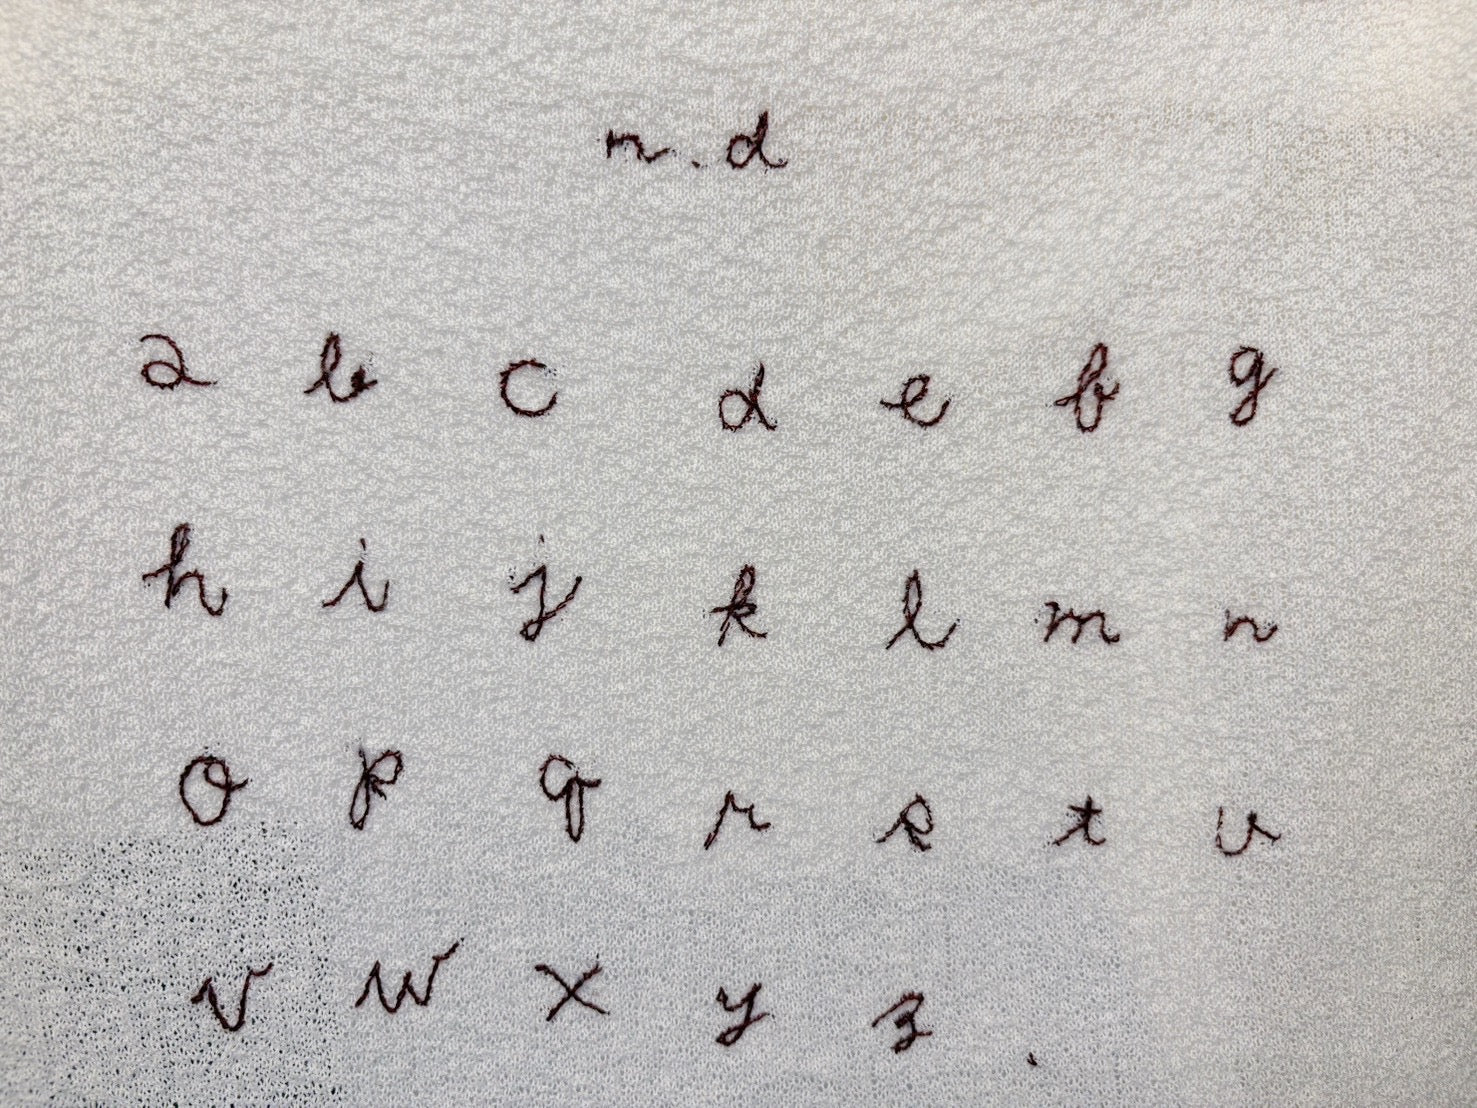 n.d
a b c d e f g
h i j k l m n
o p q r s t u
v w x y z .